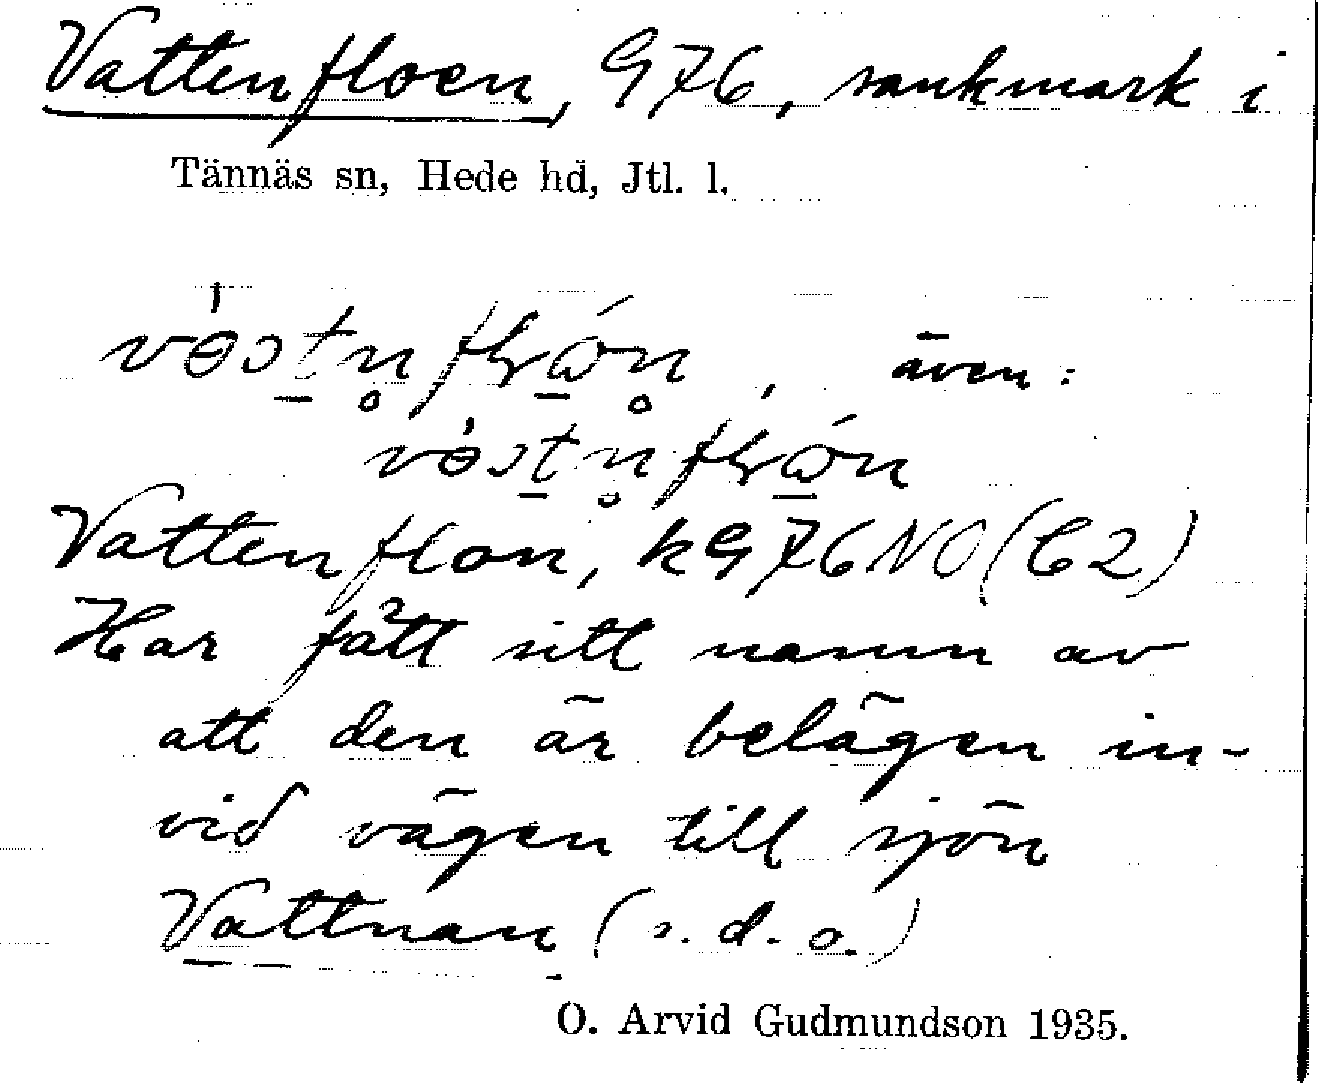 Vattenfloen, G76, sankmark i
Tännäs sn, Hede hd, Jtl. l.
även:
Vattenflon, kG76NO(C2)
Har fått sitt namn av
att den är belägen in-
vid vägen till sjön
Vattnan (s.d.o.)
O. Arvid Gudmundson 1935.